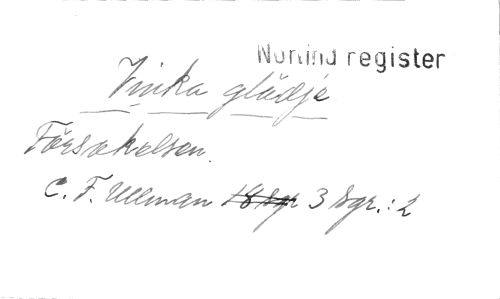 Norlind register
Vinka glädje
Försakelsen.
C. F. Ullman 18 sgr 3 Sgr. : 2